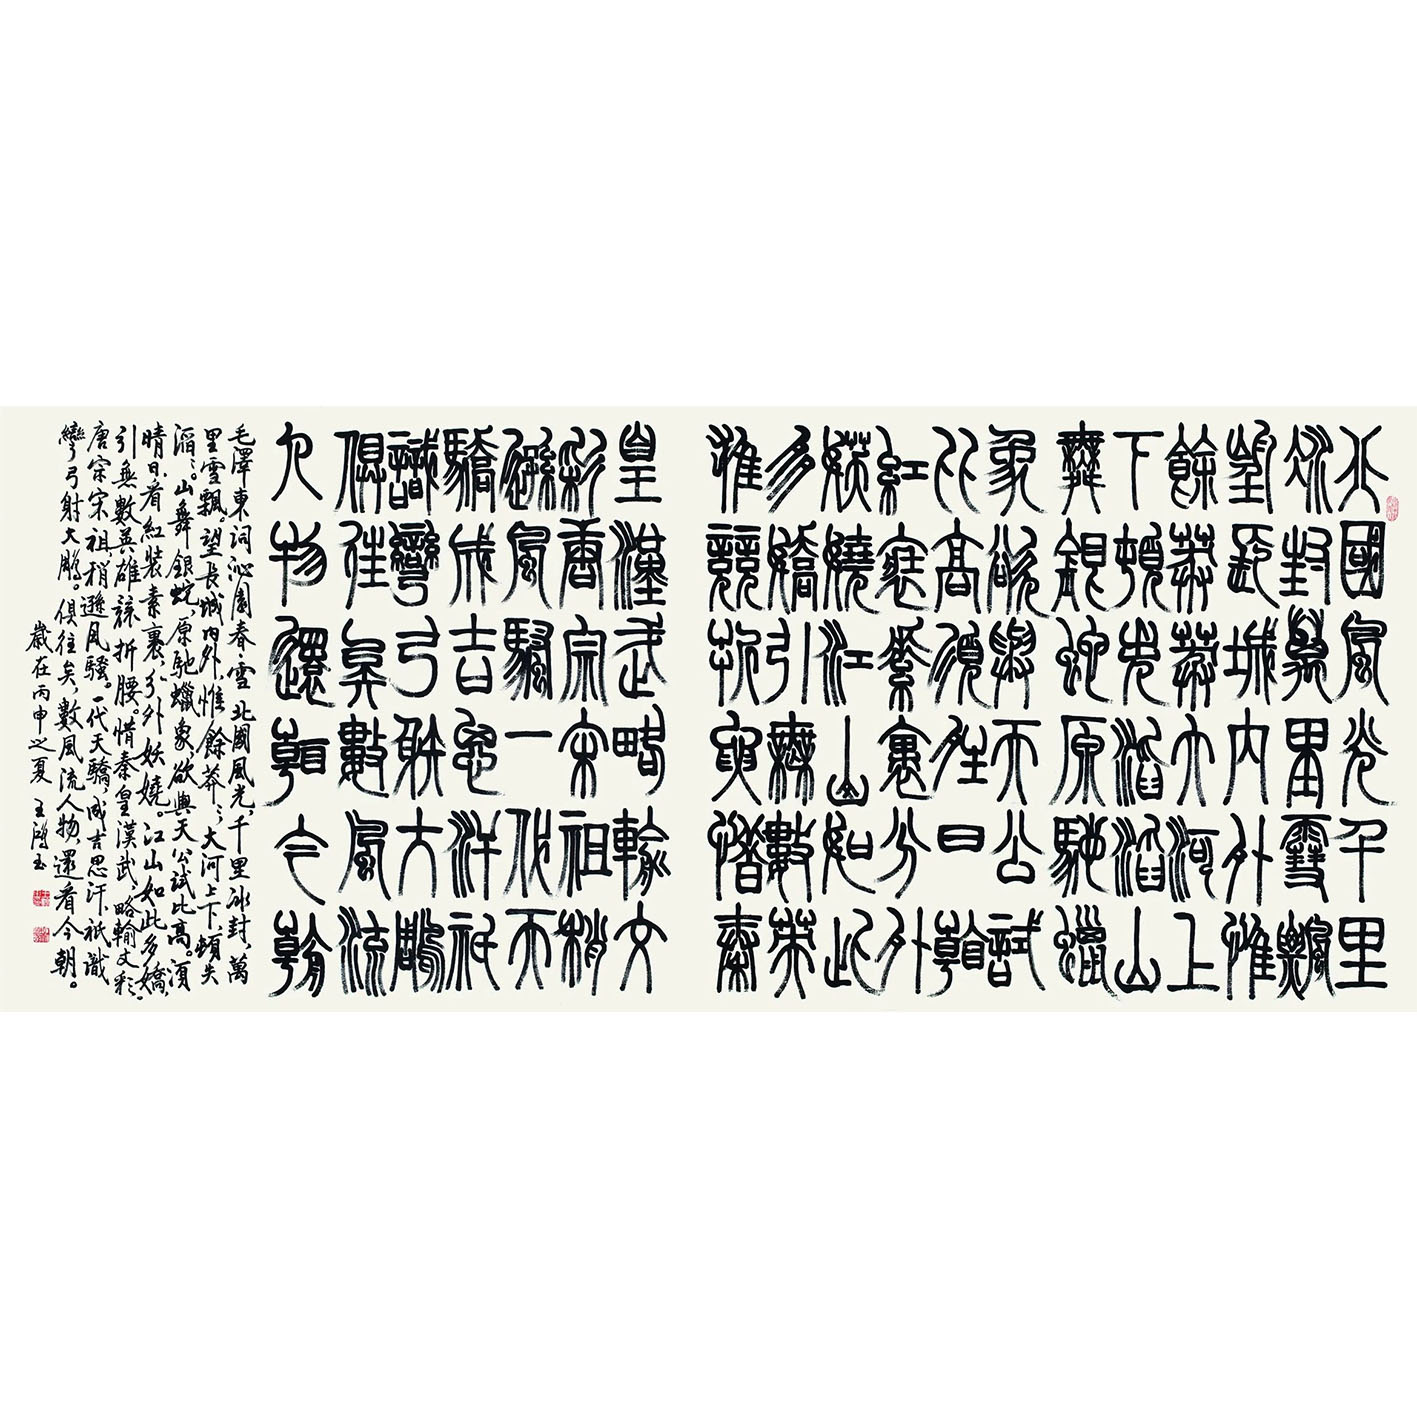 北國風光千里
冰封萬里雪飄
望長城內外惟
餘莽莽大河上
下頓失滔滔山
舞銀蛇原馳蠟
象欲與天公試
比高須晴日看
紅裝素裹分外
妖嬈江山如此
多嬌引無數英
雄競折腰惜秦
皇漢武略輸文
彩唐宗宋祖稍
遜風騷一代天
驕成吉思汗祇
識彎弓射大鵰
俱往矣數風流
人物還看今朝
毛澤東詞沁園春·雪 北國風光，千里冰封，萬
里雪飄。望長城內外，惟餘莽〻；大河上下，頓失
滔〻。山舞銀蛇，原馳蠟象，欲與天公試比高。須
晴日，看紅裝素裹，分外妖嬈。江山如此多嬌，
引無數英雄競折腰。惜秦皇漢武，略輸文彩；
唐宗宋祖，稍遜風騷。一代天驕，成吉思汗，祇識
彎弓射大鵰。俱往矣，數風流人物，還看今朝。
歲在丙申之夏 王鴻玉